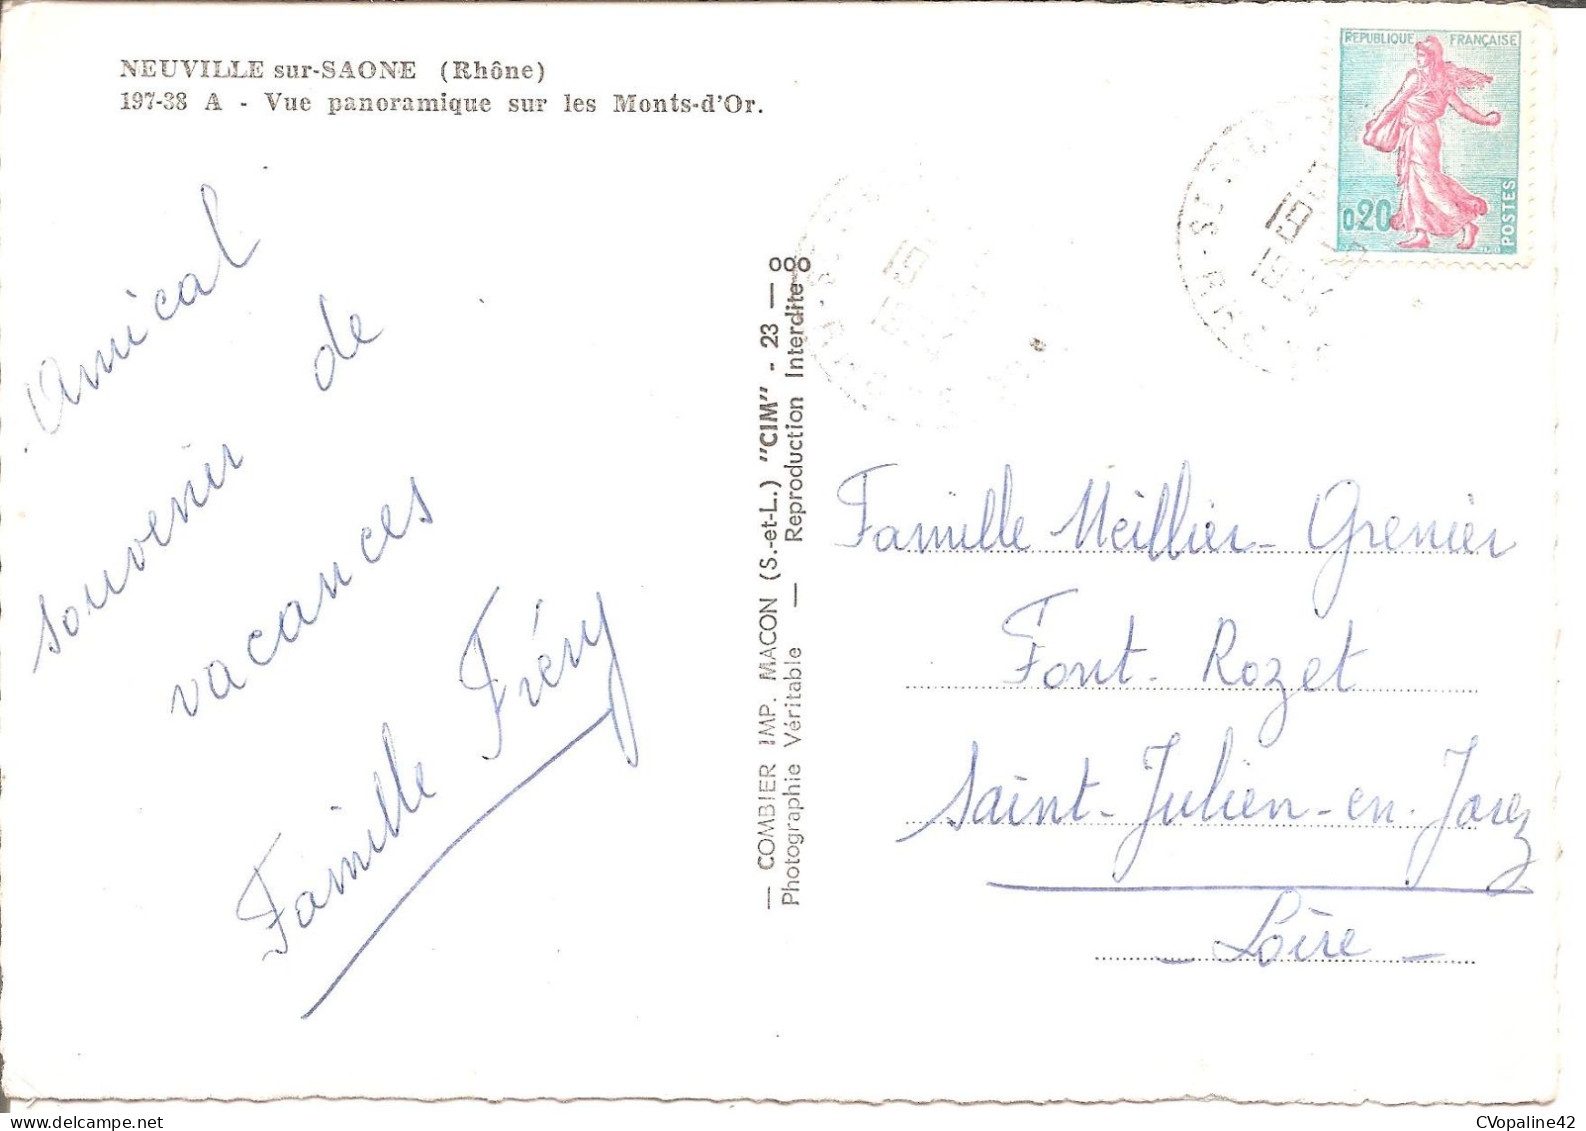 NEUVILLE sur-SAONE (Rhône)
197-38 A - Vue panoramique sur les Monts-d'Or.
Amical
souvenir de
vacances
Famille Fréry
— COMBIER IMP. MACON (S.-et-L.) "CIM" - 23 — 000
Photographie Véritable — Reproduction Interdite
REPUBLIQUE FRANÇAISE
0.20
POSTES
19
1964
19
Famille Meillier-Grenier
Font-Rozet
Saint-Julien-en-Jarez
- Loire -
CVopaline42